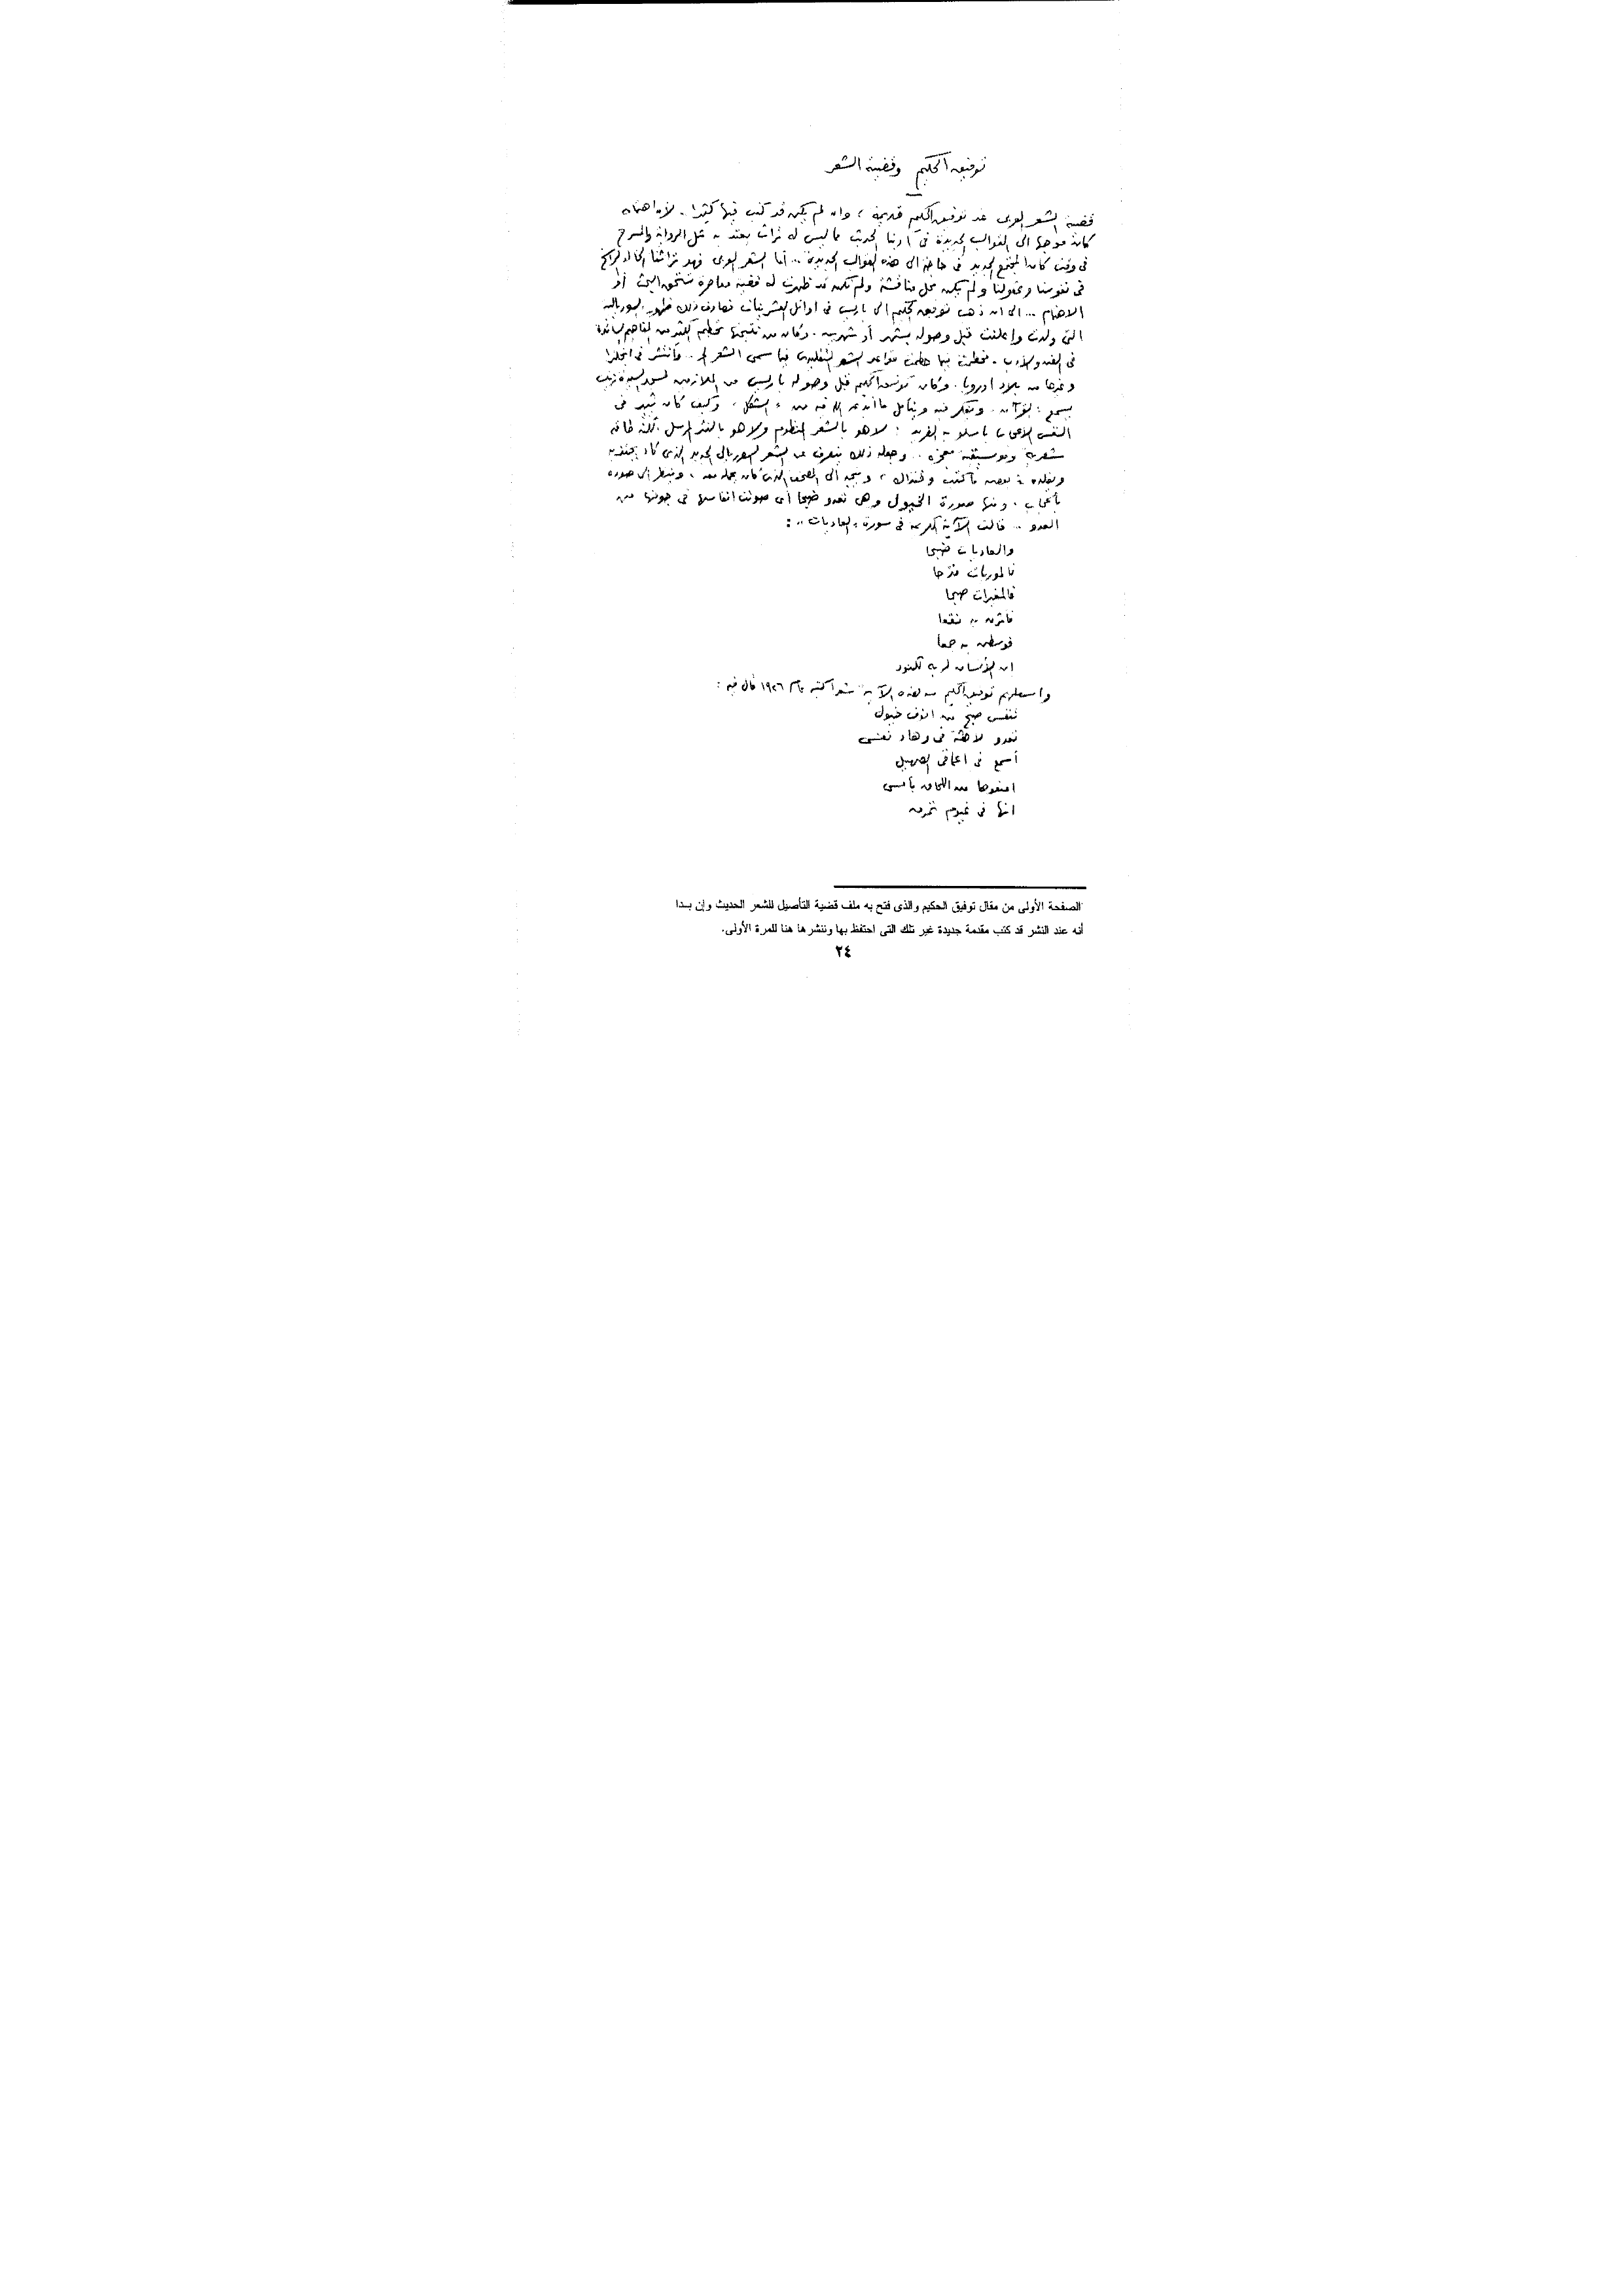 توفيق الحكيم وقضية الشعر
قضية الشعر العربى عند توفيق الحكيم قديمة ، وان لم يكن قد كتب فيها كثيرا . لأن اهتمامه
كان موجها الى القوالب الجديدة فى أدبنا الحديث مما ليس له تراث يعتد به مثل الرواية والمسرح
فى وقت كان المجتمع الجديد فى حاجة الى هذه القوالب الجديدة .. أما الشعر العربى فهو تراثنا الخالد الراسخ
فى نفوسنا وعقولنا ولم يكن محل مناقشة ولم تكن قد ظهرت له قضية معاصرة تستحق البحث أو
الاهتمام ... الى ان ذهب توفيق الحكيم الى باريس فى اوائل العشرينات فصادف ذلك ظهور السوريالية
التى ولدت واعلنت قبل وصوله بشهر أو شهرين . وكان من نتيجتها تحطيم الكثير من المفاهيم السائدة
فى الفن والأدب . فحطمت فيما حطمت قواعد الشعر التقليدى فيما سمى الشعر الحر .. وانتشر فى انجلترا
وغيرها من بلاد اوروبا . وكان توفيق الحكيم قبل وصوله باريس من الملازمين لمسجد السيدة زينب
يسمع القرآن . ويفكر فيه ويتأمل ما أبدعه الله فيه من « الشكل » وكيف كان تثير فى
النفس الاعجاب باسلوبه الفريد : لا هو بالشعر المنظوم ولا هو بالنثر المرسل . لكنه طاقة
شعرية وموسيقية معجزة .. وجعله ذلك يتعرف على الشعر السوريالى الجديد الذى كاد يجتذبه
ويقلده فى بعض ما كتب وقتذاك ، ويتجه الى المصحف الذى كان يحمله معه ، وينظر الى صوره
بأعجاب . ومنها صورة الخيول وهى تعدو ضبحا أى صوت انفاسها فى جوفها من
العدو .. قالت الآية الكريمة فى سورة « العاديات » :
والعاديات ضبحا
فالموريات قدحا
فالمغيرات صبحا
فأثرن به نقعا
فوسطن به جمعا
ان الأنسان لربه لكنود
واستلهم توفيق الحكيم من هذه الآية شعرا كتبه عام ١٩٢٦ قال فيه :
تنفس صبح من انوف خيول
تعدو لاهثة فى وهاد نفسى
أسمع فى اعماقى الصهيل
امنعوها من اللحاق بأمسى
انها فى غيوم تمرق
الصفحة الأولى من مقال توفيق الحكيم والذى فتح به ملف قضية التأصيل للشعر الحديث وإن بـدا
أنه عند النشر قد كتب مقدمة جديدة غير تلك التى احتفظ بها وننشرها هنا للمرة الأولى.
٢٤